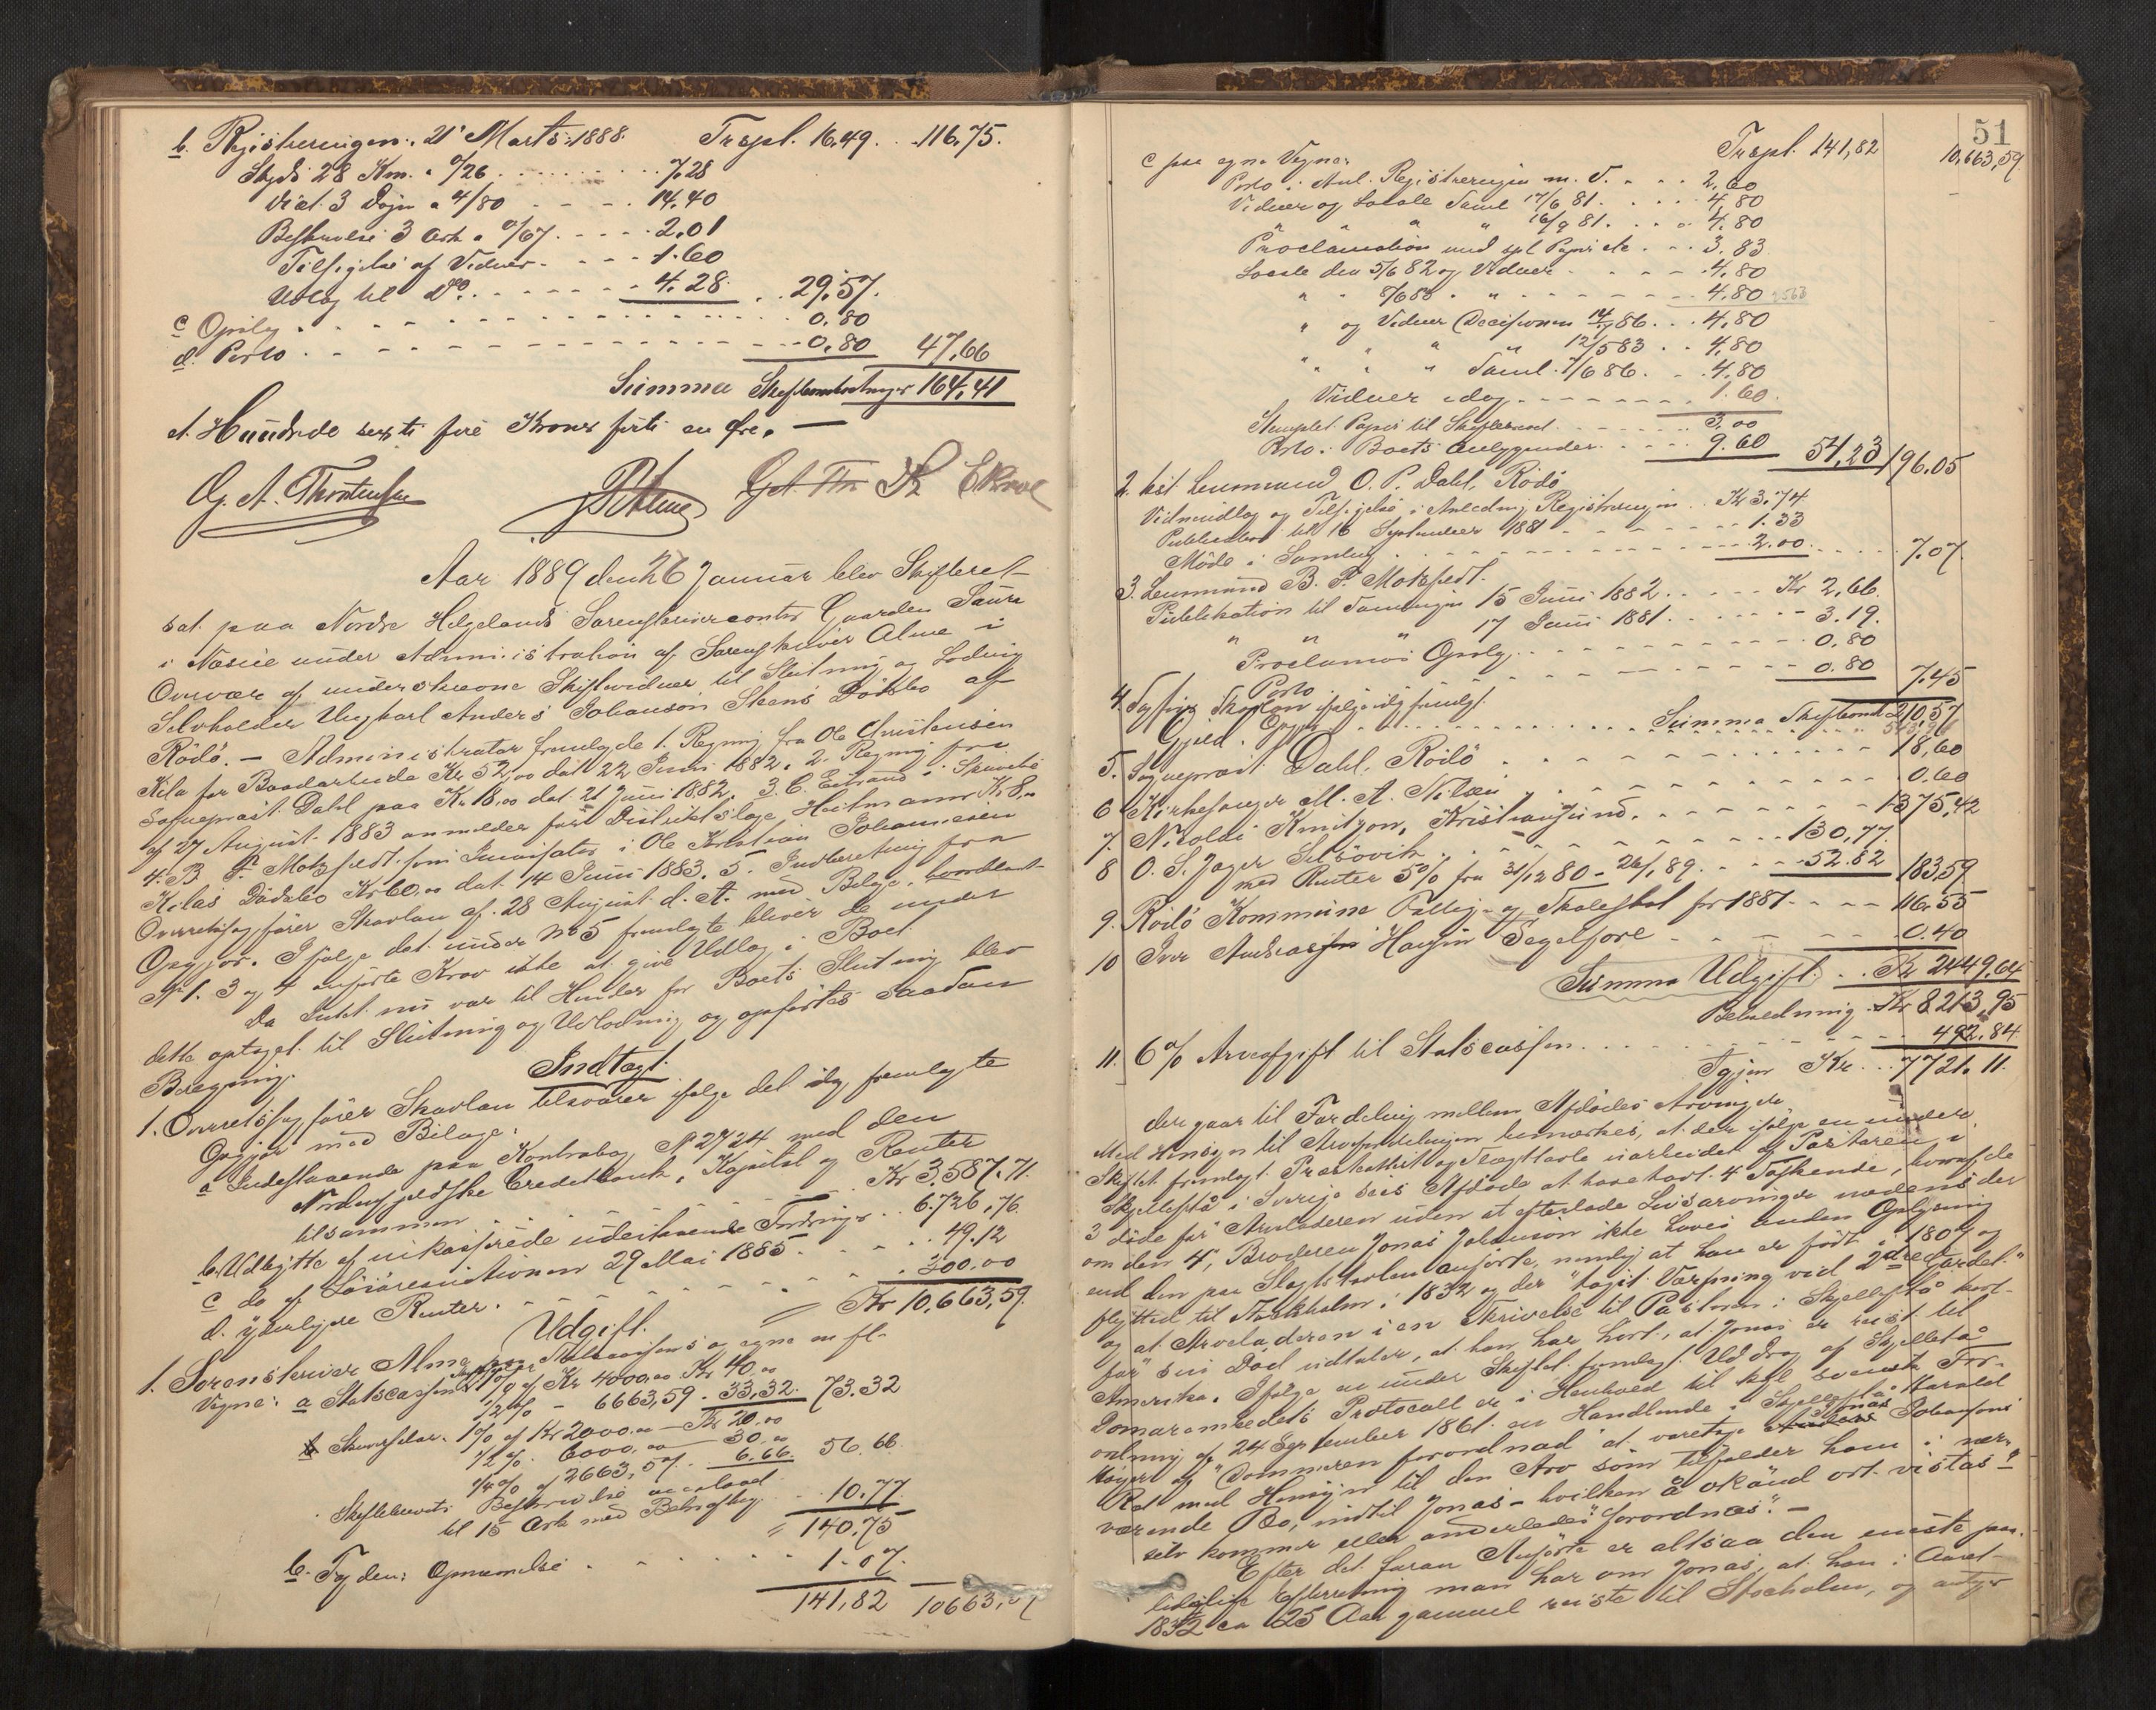 b. Registreringen: 21 Marts 1888. Trspt. 16,49 . . 116,75.
Skyds 28 Km. a 0/26 . . . 7.28
Diæt 3 Døgn a 4/80 - - - 14.40
Beskrivelse 3 Ark a 0/67 . . . 2.01
Tilsigelse af Vidner - - - 1.60
Udlæg til Do. . . . 4.28. . . 29,57.
c Opslag . . . 0.80
d. Porto . . . 0,80 47,66
Summa Skifteomkostninger 164,41
et Hundrede sexti fire Kroner förti en Øre. —
G. A. Thortensen
Aar 1889 den 26 Januar blev Skifteret
sat paa Nordre Helgelands Sorenskrivercontor Gaarden Saura
i Næsne under Administration af Sorenskriver Alme i
Overvær af underskrevne Skiftevidner til Slutning og Lodning
Selvholder Ungkarl Anders Johanson Stens Dödsbo af
Rödö. — Administrator fremlagde 1. Regning fra Ole Christensen
Kila for Baadarbeide Kr 52,00 dat 22 Juni 1882. 2. Regning fra
Sogneprest Dahl paa Kr 18,00 dat. 21 Juni 1882. 3. C. i
af 27 August 1883 anmelder for Distriktslæge Heitmann Kr 8,00
4. B. F. Motzfedt som i Ole Kristian Johannesen
Kilas Dödsbo Kr 60,00 dat. 14 Juni 1883. 5. Indberetning fra
Overretssagfører Skavlan af 28 August d. A. med Bilage,
Opgjör. Ifølge det under No 5 fremlagte bliver de under
No 1. 3 og 4 anførte Krav ikke at give Udlæg i Boet.
Da Intet nu var til Hinder for Boets Slutning blev
dette optaget til Slutning og Udlodning og opförtes saadan
Beregning.
Indtægt.
1. Overretssagfører Skavlan tilsvarer ifølge det idag fremlagte
Opgjör med Bilage:
a Indestaaende paa Kontrabog No 2724 med den
Nordenfjeldske Creditbank, Kapital og Renter
tilsammen . . . Kr 3,587.71.
b. Udbytte af inkasserede udestaaende Fordringer . . 6.726,76.
c do af Løsöreauctionen 29 Mai 1885. . . . 49.12
d. yderligere Renter. . . . 300.00
Kr 10,663,59.
Udgift.
1. Sorenskriver Alme paa Statscassens og egne m fl.
Vegne: a Statscassen 1% af Kr 4000,00 Kr 40,00
1/2 % - 6663,59 . 33,32. 73.32
b Skriverdel. 1% af Kr 2000.00 — Kr 20,00
1/2 % . 6000,00 — 30.00
1/4 % af 2663,59. 6.66. 56.66.
Skiftebrevets Beskrivelse
til 15 Ark med Bekræftelse . . 10.77
140.75
b. Fogden: Opnævnelse . . . 1.07.
141,82 10663,59
51
Trspt. 141,82 10,663,59
c paa egne Vegne:
Porto i Anl. Registreringen m. V. . . . 2,60
Vidner og Locale Saml 17/6 81. . . . 4,80
" " " 16/9 81. . . 4.80
Proclamation med spl Papir etc. . . 3.83
Locale den 5/6 82 og Vidner . . . 4,80
" " 8/6 83 . " - - - 4.80
" og Vidner Decisionen 14/ 86. . . 4.80
" " " " 12/5 83 . . 4,80
" " " Saml. 1/6 86. . . 4.80
Vidner idag . . . 1.60
Stemplet Papir til Skiftebrevet . . . 3,00
Porto i Boets Anliggender . . . 9.60 54,23 196.05
2. kst Lensmand O. P. Dahl, Rödö
Vidneudlæg og Tilsigelse i Anledning Registreringen . . Kr 3.74
Publikation til 16 September 1881 - - - 1.33
Möde i Samling . . . 2.00 . . . 7.07
3. Lensmand B. F. Motzfedt.
Publikation til Samlingen 15 Juni 1882 . . . Kr 2,66.
" " " 17 Juni 1881 . . . 3.19.
Proclamas Opslag . . . 0.80
Porto . . . 0.80 7.45
4. Sagfører Skavlan ifølge idag fremlagt
Opgjør . . . Summa Skifteomk. 210,57
Gjæld.
5. Sogneprest Dahl, Rödö . . . 18,60
6 Kirkesanger M. A. Nilsen . . . 0.60
7. Nicolai Knutzon, Kristiansund. . . . 1375,42
8 O. S. Jæger Selsövik . . . 130,77.
med Renter 5% fra 31/12 80 - 26/1 89. . . . 52.82 183,59
9. Rödö Kommune Fattig- og Skoleskat for 1881 - - - 116.55
10 Iver Andreas Hansen Segelfore . . . 0.40
Summa Udgift . . Kr 2449,64
Beholdning Kr 8213,95
11. 6% Arveafgift til Statscassen . . . 492.84
Igjen Kr. . . 7721.11.
der gaar til Fordeling mellem Afdødes Arvinger
Med Hensyn til Arvefordelingen bemærkes, at der ifølge en under
Skiftet fremlagt Præsteattest og Slægttavle udarbeidet af Pastoren i
Skjellefteå i Sverige sees Afdøde at have havt 4 Søskende, hvoraf de
3 døde før Arveladeren uden at efterlade Livsarvinger medens der
om den 4, Broderen Jonas Johanson ikke haves anden Oplysning
end den paa Slægttavlen anførte, nemlig at han er født i 1807 og
flyttet til Stockholm i 1832 og der "tagit Värfning vid 2dra Gardet"
og at Arveladeren i en Skrivelse til Pastoren i Skjellefteå kort
før sin Død udtaler, at han har hørt, at Jonas er reist til
Amerika. Ifølge en under Skiftet fremlagt Uddrag af Skjellefteå
Domareembedets Protocoll er i Henhold til kgl svensk For-
ordning af 24 September 1861 en Handlende i Skjellefteå Harald
Höijer af "Dommeren forordnad" at varetage Jonas Johansons
Ret med Hensyn til den Arv som tilfalder ham i nær-
værende Bo, indtil Jonas - hvilken å okänd ort vistas -
selv kommer eller anderledes forordnas." —
Efter det foran Anførte er altsaa den eneste paa-
lidelige Efterretning man har om Jonas, at han i Aaret
1832 ca 25 Aar gammel reiste til Stockholm, og antages